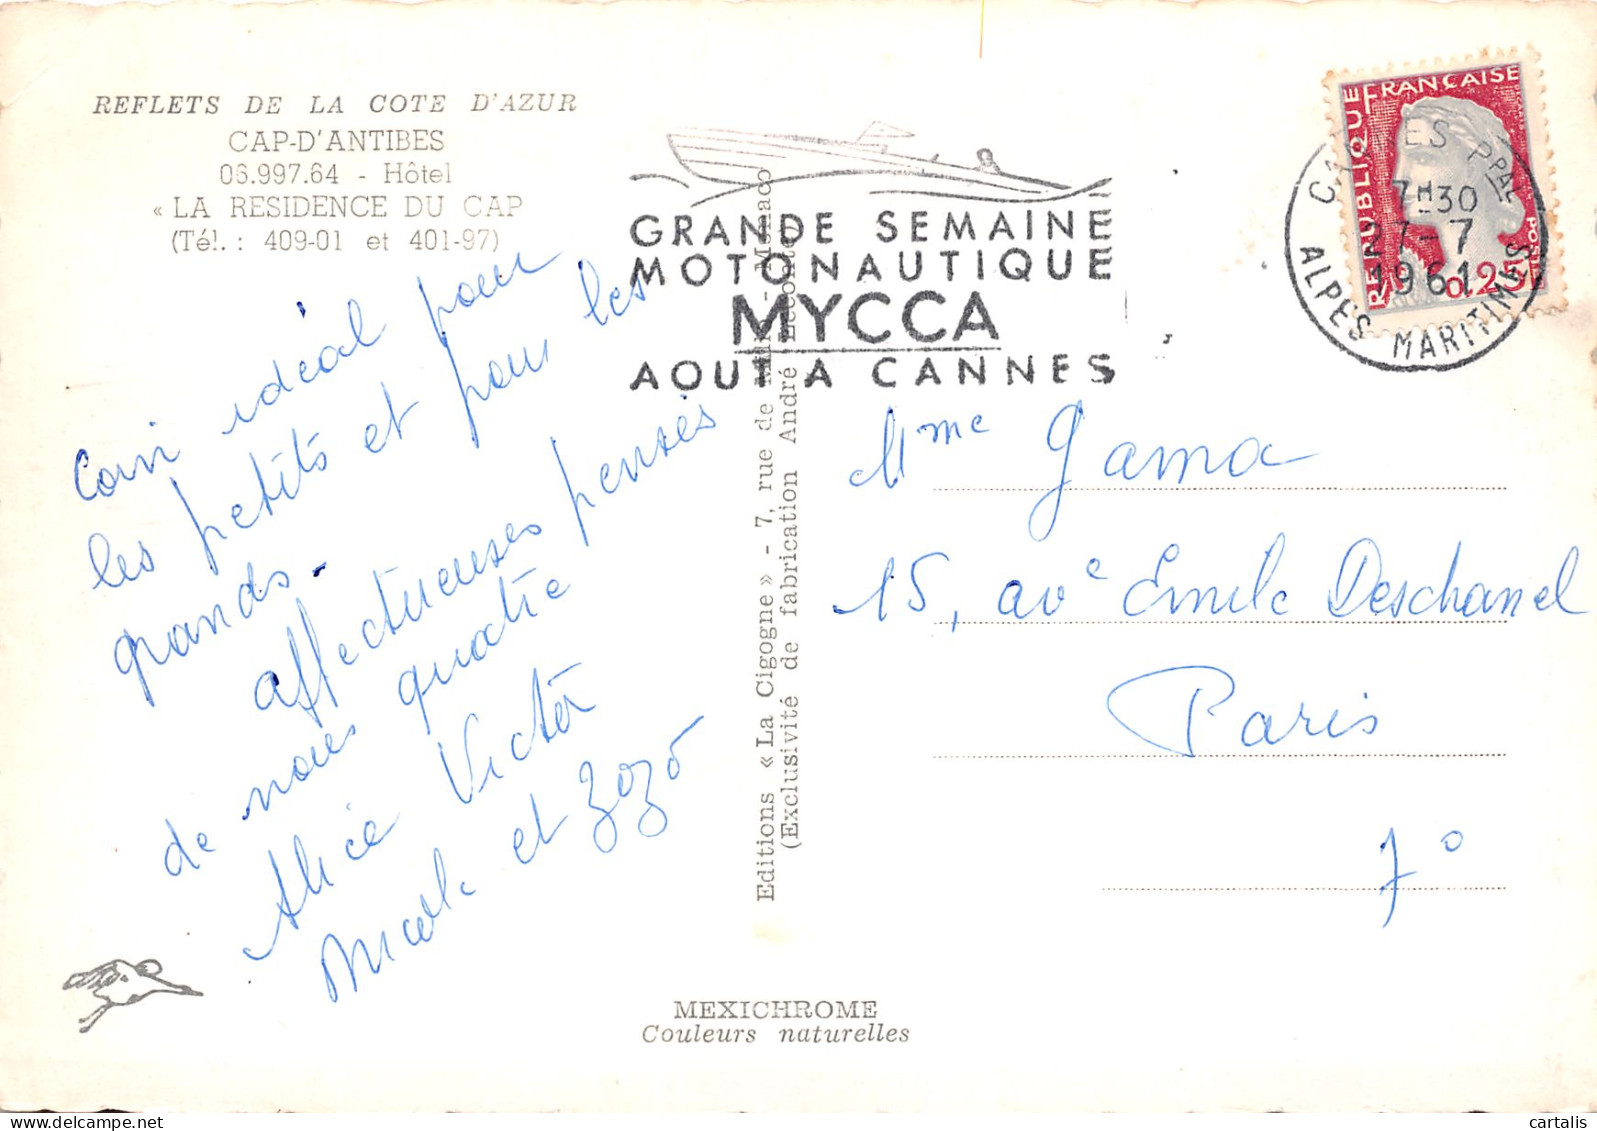 REFLETS DE LA COTE D'AZUR
CAP-D'ANTIBES
06.997.64 - Hôtel
« LA RESIDENCE DU CAP
(Tél. : 409-01 et 401-97)
Coin idéal pour
les petits et pour les
grands.
affectueuses pensées
de nous quatre
Alice Victor
et Zozo
GRANDE SEMAINE
MOTONAUTIQUE
MYCCA
AOUT A CANNES
REPUBLIQUE FRANÇAISE
POSTES
0,25
CANNES PPAL
7H30
27-7
1961
ALPES MARITIMES
Editions « La Cigogne » - 7, rue de - Monaco
(Exclusivité de fabrication André Leconte)
Mme Gama
15, ave Emile Deschanel
Paris
7o
MEXICHROME
Couleurs naturelles
cartalis
delcampe.net